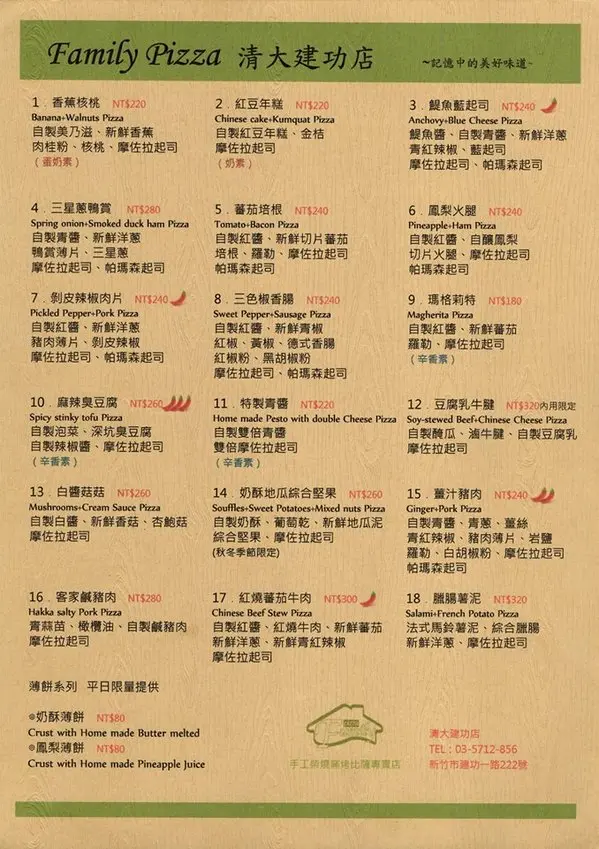 Family Pizza 清大建功店 ~記憶中的美好味道~
1．香蕉核桃 NT$220
Banana+Walnuts Pizza
自製美乃滋、新鮮香蕉
肉桂粉、核桃、摩佐拉起司
（蛋奶素）
2．紅豆年糕 NT$220
Chinese cake+Kumquat Pizza
自製紅豆年糕、金桔
摩佐拉起司
（奶素）
3．鯷魚藍起司 NT$240
Anchovy+Blue Cheese Pizza
鯷魚醬、自製青醬、新鮮洋蔥
青紅辣椒、藍起司
摩佐拉起司、帕瑪森起司
4．三星蔥鴨賞 NT$280
Spring onion+Smoked duck ham Pizza
自製青醬、新鮮洋蔥
鴨賞薄片、三星蔥
摩佐拉起司、帕瑪森起司
5．蕃茄培根 NT$240
Tomato+Bacon Pizza
自製紅醬、新鮮切片蕃茄
培根、羅勒、摩佐拉起司
帕瑪森起司
6．鳳梨火腿 NT$240
Pineapple+Ham Pizza
自製紅醬、自釀鳳梨
切片火腿、摩佐拉起司
帕瑪森起司
7．剝皮辣椒肉片 NT$240
Pickled Pepper+Pork Pizza
自製紅醬、新鮮洋蔥
豬肉薄片、剝皮辣椒
摩佐拉起司、帕瑪森起司
8．三色椒香腸 NT$240
Sweet Pepper+Sausage Pizza
自製紅醬、新鮮青椒
紅椒、黃椒、德式香腸
紅椒粉、黑胡椒粉
摩佐拉起司、帕瑪森起司
9．瑪格莉特 NT$180
Magherita Pizza
自製紅醬、新鮮蕃茄
羅勒、摩佐拉起司
（辛香素）
10．麻辣臭豆腐 NT$260
Spicy stinky tofu Pizza
自製泡菜、深坑臭豆腐
自製辣椒醬、摩佐拉起司
（辛香素）
11．特製青醬 NT$220
Home made Pesto with double Cheese Pizza
自製雙倍青醬
雙倍摩佐拉起司
（辛香素）
12．豆腐乳牛腱 NT$320內用限定
Soy-stewed Beef+Chinese Cheese Pizza
自製醃瓜、滷牛腱、自製豆腐乳
摩佐拉起司
13．白醬菇菇 NT$260
Mushrooms+Cream Sauce Pizza
自製白醬、新鮮香菇、杏鮑菇
摩佐拉起司
14．奶酥地瓜綜合堅果 NT$260
Souffles+Sweet Potatoes+Mixed nuts Pizza
自製奶酥、葡萄乾、新鮮地瓜泥
綜合堅果、摩佐拉起司
(秋冬季節限定)
15．薑汁豬肉 NT$240
Ginger+Pork Pizza
自製青醬、青蔥、薑絲
青紅辣椒、豬肉薄片、岩鹽
羅勒、白胡椒粉、摩佐拉起司
帕瑪森起司
16．客家鹹豬肉 NT$280
Hakka salty Pork Pizza
青蒜苗、橄欖油、自製鹹豬肉
摩佐拉起司
17．紅燒蕃茄牛肉 NT$300
Chinese Beef Stew Pizza
自製紅醬、紅燒牛肉、新鮮蕃茄
新鮮洋蔥、新鮮青紅辣椒
摩佐拉起司
18．臘腸薯泥 NT$320
Salami+French Potato Pizza
法式馬鈴薯泥、綜合臘腸
新鮮洋蔥、摩佐拉起司
薄餅系列 平日限量提供
◎奶酥薄餅 NT$80
Crust with Home made Butter melted
◎鳳梨薄餅 NT$80
Crust with Home made Pineapple Juice
清大建功店
TEL：03-5712-856
新竹市建功一路222號